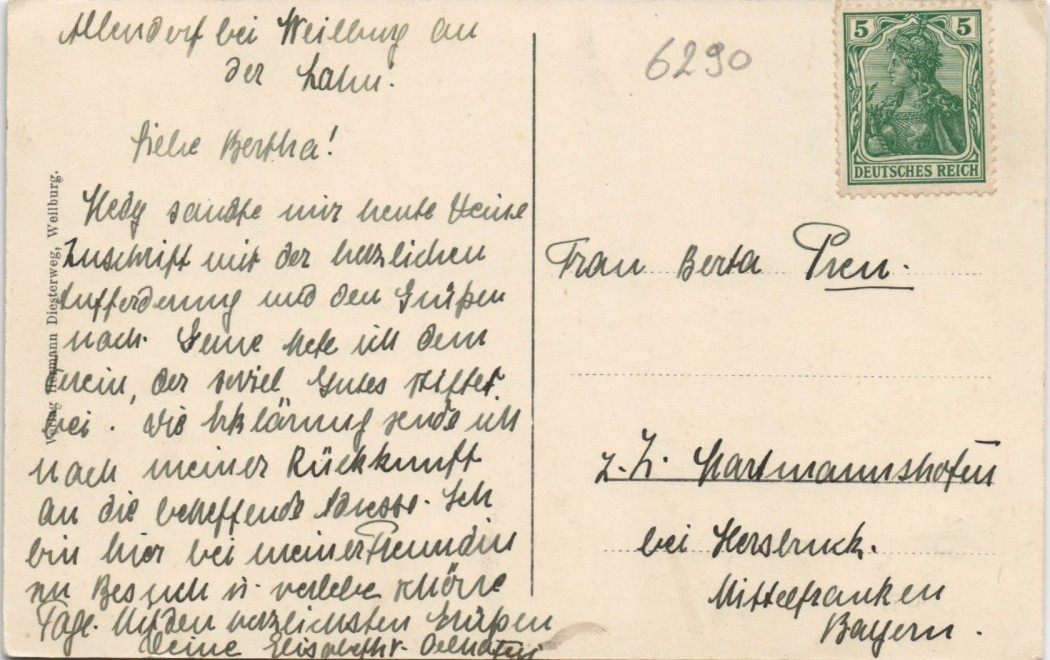 Allendorf bei Weilburg an
der Lahn.
Liebe Bertha!
Hedy sandte mir heute Deine
Zuschrift mit der herzlichen
Aufforderung und den Grüßen
nach. Gerne trete ich dem
Verein, der soviel Gutes stiftet
bei. Die Erklärung sende ich
nach meiner Rückkunft
an die betreffende Adresse. Ich
bin hier bei meiner Freundin
zu Besuch u. verlebe schöne
Tage. Mit den herzlichsten Grüßen
Deine
Verlag Hermann Diesterweg, Weilburg.
6290
5 5
DEUTSCHES REICH
Frau Berta
z. Z. Hartmannshofen
bei Hersbruck.
Mittelfranken
Bayern.